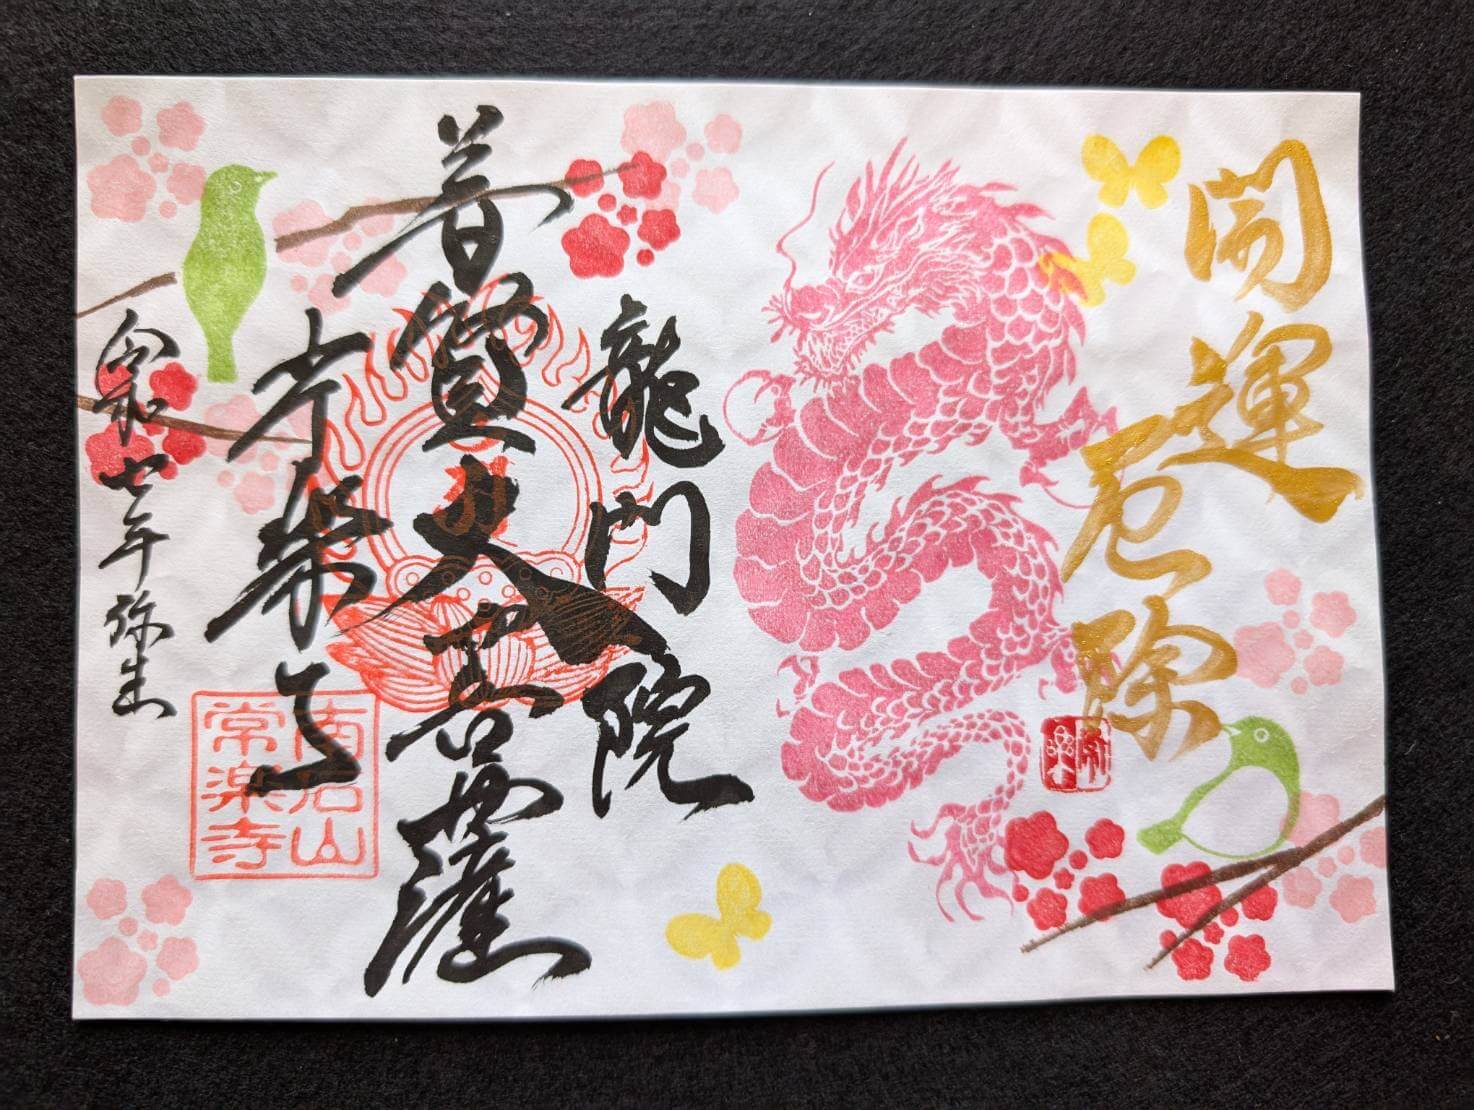 開運
厄除
龍門院
普賢大菩薩
常楽寺
令和七年弥生
南石山
常楽寺